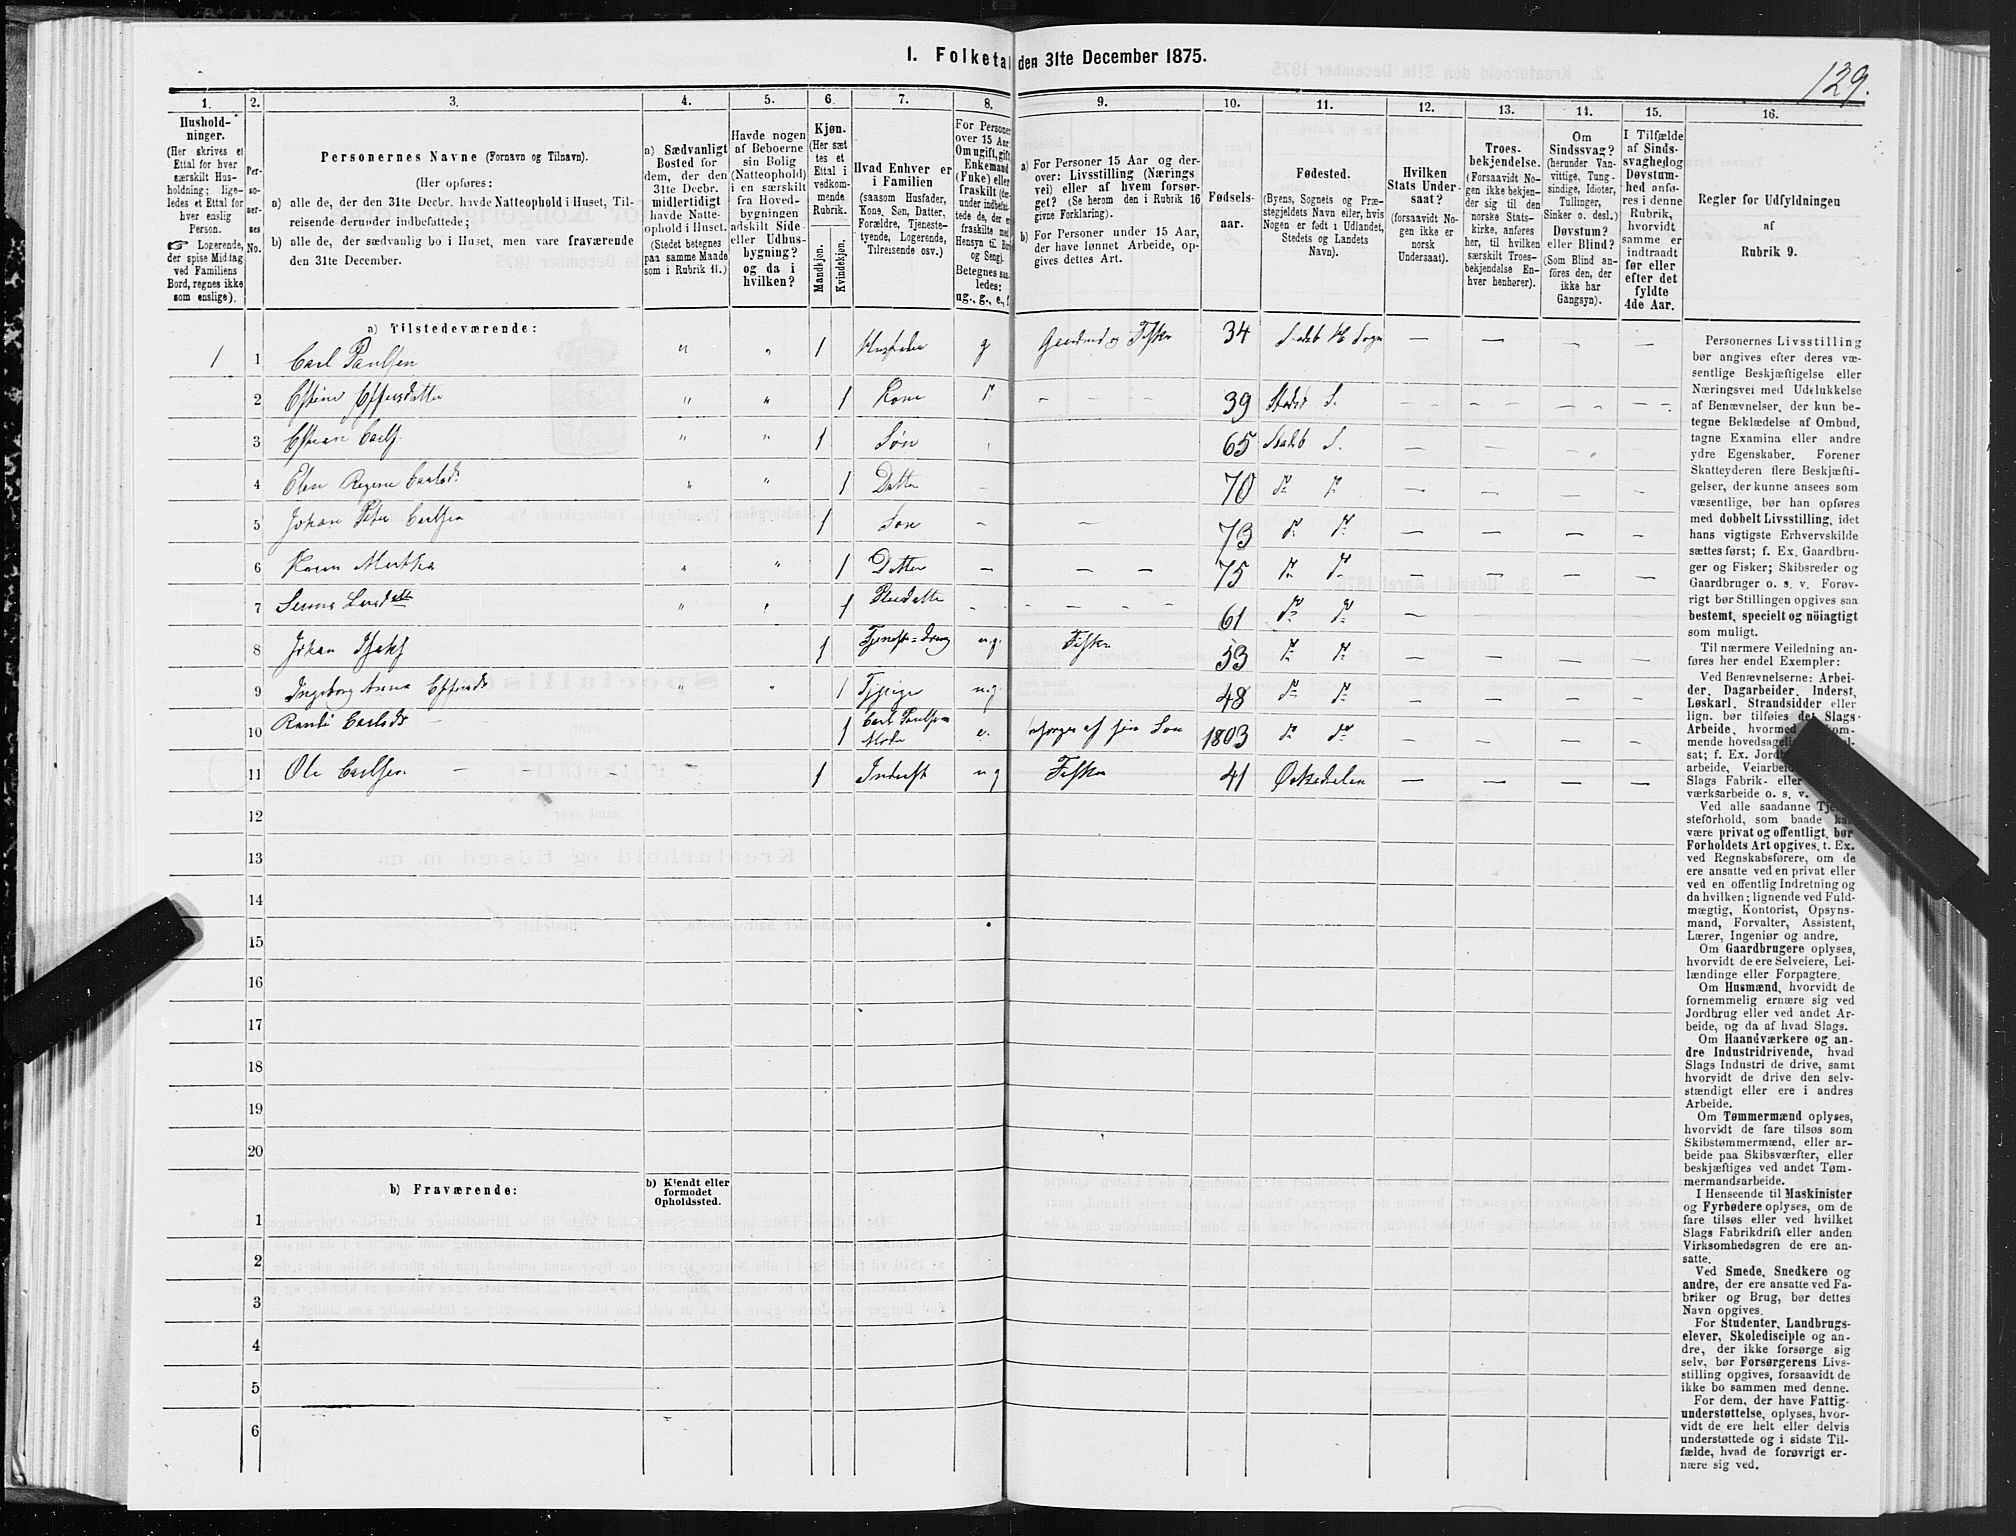 1. Folketal den 31te December 1875.
129.
1.
2.
3.
4.
5.
6.
7.
8.
9.
10.
11.
12.
13.
14.
15.
16.
Hushold-
ninger.
(Her skrives et
Ettal for hver
særskilt Hus-
holdning; lige-
ledes et Ettal for
hver enslig
Person.
☞ Logerende,
der spise Middag
ved Familiens
Bord, regnes ikke
som enslige).
Per-
so-
ner-
nes
No.
Personernes Navne (Fornavn og Tilnavn).
(Her opføres:
a) alle de, der den 31te Decbr. havde Natteophold i Huset, Til-
reisende derunder indbefattede;
b) alle de, der sædvanlig bo i Huset, men vare fraværende
den 31te December.
a) Sædvanligt
Bosted for
dem, der den
31te Decbr.
midlertidigt
havde Natte-
ophold i Huset.
(Stedet betegnes
paa samme Maade
som i Rubrik 11.)
Havde nogen
af Beboerne
sin Bolig
(Natteophold)
i en særskilt
fra Hoved-
bygningen
adskilt Side-
eller Udhus-
bygning?
og da i
hvilken?
Kjøn.
(Her sæt
tes et
Ettal i
vedkom-
mende
Rubrik.
Mandkjøn.
Kvindekjøn.
Hvad Enhver er
i Familien
(saasom Husfader,
Kone, Søn, Datter,
Forældre, Tjeneste-
tyende, Logerende,
Tilreisende osv.)
For Personer
over 15 Aar:
Om ugift, gift,
Enkemand
(Enke) eller
fraskilt (der-
under indbefat-
tede de, der er
fraskilte med
Hensyn til Bord
og Seng).
Betegnes saa-
ledes:
ug., g., e., f.
a) For Personer 15 Aar og der-
over: Livsstilling (Nærings
vei) eller af hvem forsør-
get? (Se herom den i Rubrik 16
givne Forklaring).
b) For Personer under 15 Aar,
der have lønnet Arbeide, op-
gives dettes Art.
Fødsels-
aar.
Fødested.
(Byens, Sognets og Præ-
stegjeldets Navn eller, hvis
Nogen er født i Udlandet,
Stedets og Landets
Navn).
Hvilken
Stats Under-
saat?
(forsaavidt No-
gen ikke er
norsk
Undersaat).
Troes-
bekjendelse.
(Forsaavidt No-
gen ikke bekjen-
der sig til den
norske Stats-
kirke, anføres
her, til hvilken
særskilt Troes-
bekjendelse En-
hver henhører).
Om
Sindssvag?
(herunder Van-
vittige, Tung-
sindige, Idioter,
Tullinger,
Sinker o. desl.)
Døvstum?
eller Blind?
(Som Blind an-
føres den, der
ikke har
Gangsyn).
I Tilfælde
af Sinds-
svaghed og
Døvstum-
hed anfø-
res i denne
Rubrik,
hvorvidt
samme er
indtraadt
før eller
efter det
fyldte
4de Aar.
Regler for Udfyldningen
af
Rubrik 9.
a) Tilstedeværende:
1 1 Carl Paulsen " " 1 Husfader g Gaardmd og Fisker 34 Stadsb H Sogn — — — —
2 " " 1 Kone 39 S.
3 Carls. " " 1 Søn 65 Stadsb S.
4 Elen Regine Carlsdt " " 1 Datter 70
5 Johan Peter Carlsen 1 Søn 73
6 Karen Martha " " 1 Datter 75
7 1 Pleiedatter 61
8 Johan 1 Tjeneste=Dreng u.g. Fisker 53
9 Ingeborg Anna " " 1 u.g. 48
10 Carlsdt 1 Carl Paulsens Moder e. forsørges af sin Søn 1803
11 Ole Carlsen 1 Inderst u g Fisker 41 Orkedalen
12
13
14
15
16
17
18
19
20
b) Fraværende:
b) Kjendt eller
formodet
Opholdssted.
1
2
3
4
5
6
Personernes Livsstilling
bør angives efter deres væ-
sentlige Beskjæftigelse eller
Næringsvei med Udelukkelse
af Benævnelser, der kun be-
tegne Beklædelse af Ombud,
tagne Examina eller andre
ydre Egenskaber. Forener
Skatteyderen flere Beskjæfti-
gelser, der kunne ansees som
væsentlige, bør han opføres
med dobbelt Livsstilling, idet
hans vigtigste Erhvervskilde
sættes først; f. Ex. Gaardbru-
ger og Fisker; Skibsreder og
Gaardbruger o. s. v. Forøv-
rigt bør Stillingen opgives saa
bestemt, specielt og nöiagtigt
som muligt.
Til nærmere Veiledning an-
føres her endel Exempler:
Ved Benævnelserne: Arbei-
der, Dagarbeider, Inderst,
Løskarl, Strandsidder eller
lign. bør tilføies det Slags
Arbeide, hvormed
mende hovedsagelig
sat; f. Ex.
arbeide, Veiarbeide
Slags Fabrik- eller
værksarbeide o. s. v.
Ved alle saadanne Tjene-
steforhold, som baade kan
være privat og offentligt, bør
Forholdets Art opgives, t. Ex.
ved Regnskabsførere, om de
ere ansatte ved en privat eller
ved en offentlig Indretning og
da hvilken; lignende ved Fuld-
mægtig, Kontorist, Opsyns-
mand, Forvalter, Assistent,
Lærer, Ingeniør og andre.
Om Gaardbrugere oplyses,
hvorvidt de ere Selveiere, Lei-
lændinge eller Forpagtere.
Om Husmænd, hvorvidt de
fornemmelig ernære sig ved
Jordbrug eller ved andet Ar-
beide, og da af hvad Slags.
Om Haandværkere og an-
dre Industridrivende, hvad
Slags Industri de drive, samt
hvorvidt de drive den selv-
stændigt eller ere i andres
Arbeide.
Om Tømmermænd oplyses,
hvorvidt de fare tilsøs som
Skibstømmermænd, eller ar-
beide paa Skibsværfter, eller
beskjæftiges ved andet Tøm-
mermandsarbeide.
I Henseende til Maskinister
og Fyrbødere oplyses, om de
fare tilsøs eller ved hvilket
Slags Fabrikdrift eller anden
Virksomhedsgren de ere an-
satte.
Ved Smede, Snedkere og
andre, der ere ansatte ved Fa-
briker og Brug, bør dettes
Navn opgives.
For Studenter, Landbrugs-
elever, Skoledisciple og an-
dre, der ikke forsørge sig
selv, bør Forsørgerens Livs-
stilling opgives, forsaavidt de
ikke bo sammen med denne.
For dem, der have Fattig-
understøttelse, oplyses, hvor-
vidt de ere helt eller delvis
understøttede og i sidste Til-
fælde, hvad de forøvrigt er-
nære sig ved.